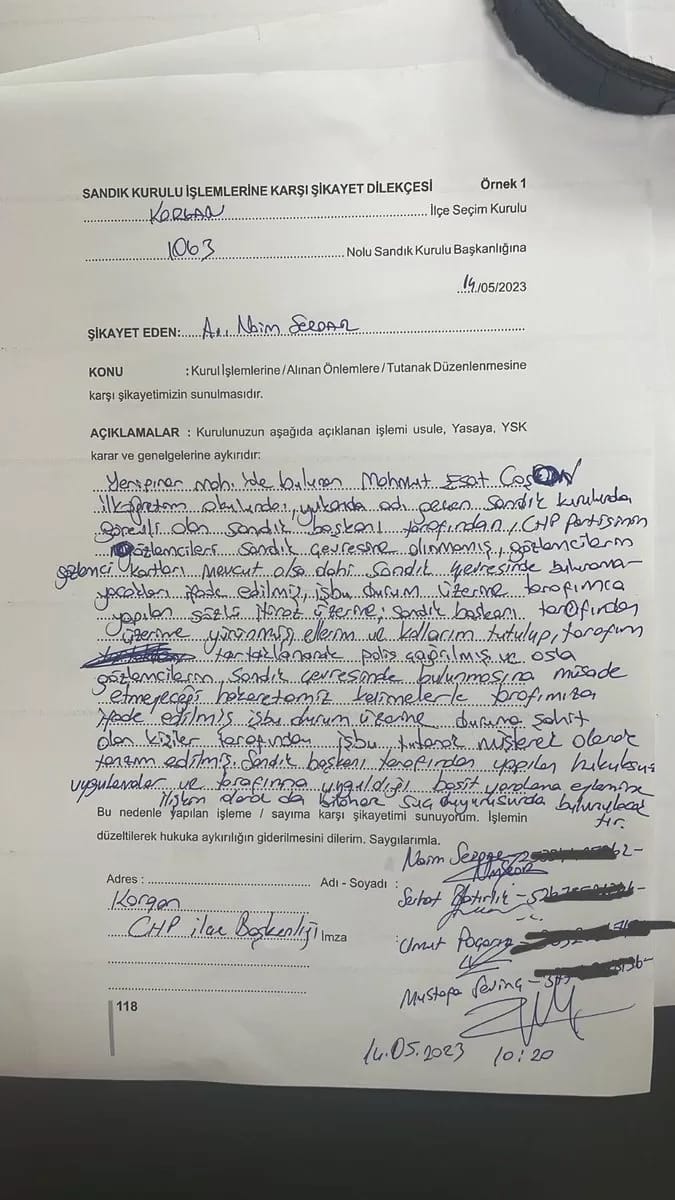 SANDIK KURULU İŞLEMLERİNE KARŞI ŞİKAYET DİLEKÇESİ Örnek 1
KORGAN İlçe Seçim Kurulu
1063 Nolu Sandık Kurulu Başkanlığına
14/05/2023
ŞİKAYET EDEN: Av. Naim SERDAR
KONU : Kurul İşlemlerine / Alınan Önlemlere / Tutanak Düzenlenmesine
karşı şikayetimizin sunulmasıdır.
AÇIKLAMALAR : Kurulunuzun aşağıda açıklanan işlemi usule, Yasaya, YSK
karar ve genelgelerine aykırıdır:
Yenipınar mah.'de bulunan Mahmut Esat
ilköğretim okulunda, yukarıda adı geçen sandık kurulunda
görevli olan sandık başkanı tarafından, CHP Partisinin
gözlemcileri sandık çevresine alınmamış, gözlemcilerin
gözlemci kartları mevcut olsa dahi sandık çevresinde bulunama-
yacakları ifade edilmiş, işbu durum üzerine tarafımca
yapılan sözlü itiraz üzerine, sandık başkanı tarafından
üzerime yürünmüş ellerim ve kollarım tutulup, tarafım
polis çağrılmış ve asla
gözlemcilerin sandık çevresinde bulunmasına müsade
etmeyeceği hakaretamiz kelimelerle tarafımıza
ifade edilmiş işbu durum üzerine duruma şahit
olan kişiler tarafından işbu tutanak müşterek olarak
tanzim edilmiş. Sandık başkanı tarafından yapılan hukuksuz
uygulamalar ve tarafıma uyguladığı basit yaralama eylemine
ilişkin olarak da suç duyurusunda bulunulacak
tır.
Bu nedenle yapılan işleme / sayıma karşı şikayetimi sunuyorum. İşlemin
düzeltilerek hukuka aykırılığın giderilmesini dilerim. Saygılarımla.
Naim
Adres : Adı - Soyadı :
Korgan
CHP ilçe Başkanlığı İmza
Umut
Mustafa Sevinç
118
14.05.2023 10:20